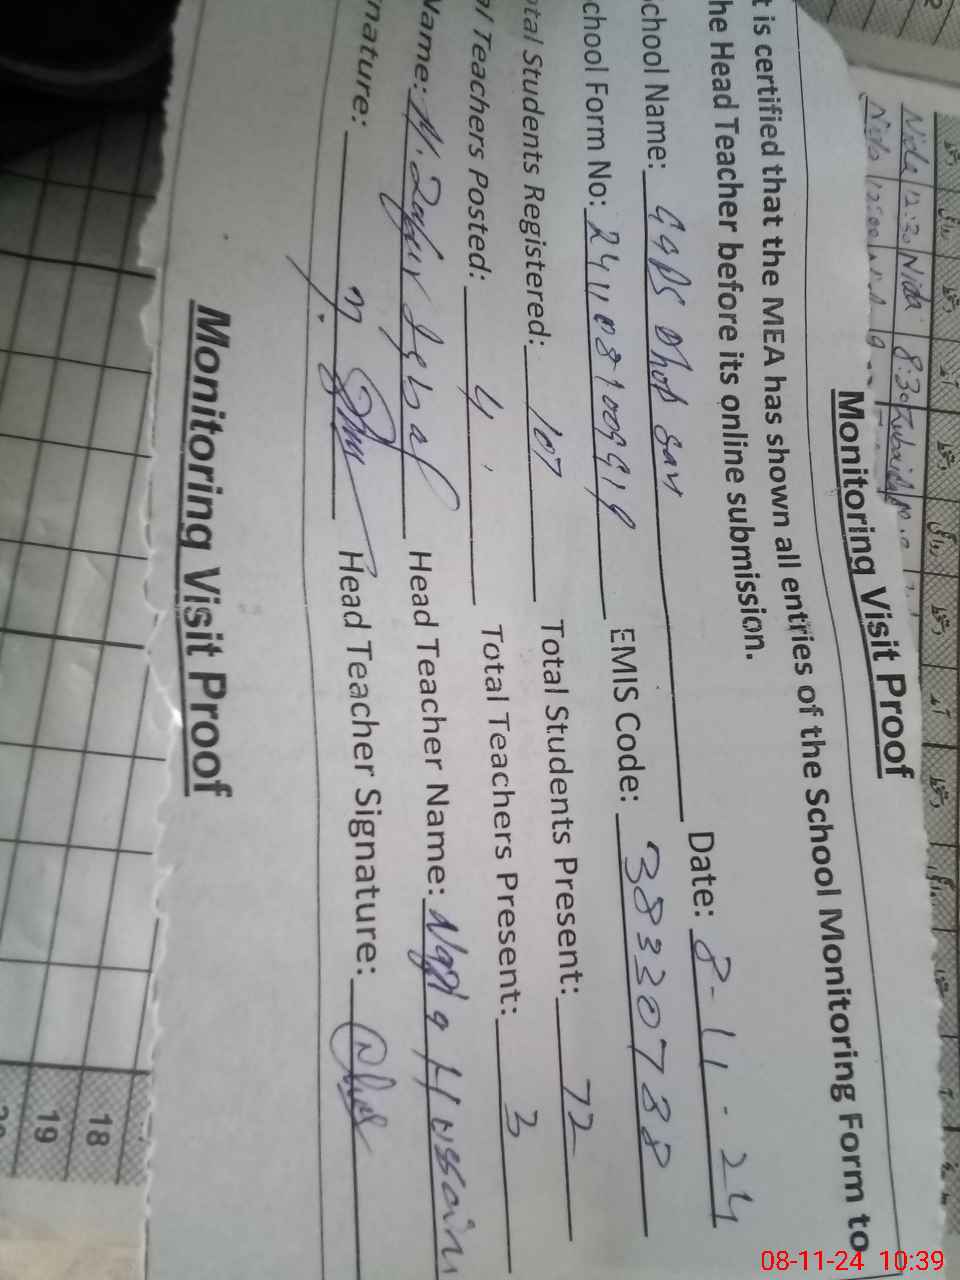 Monitoring Visit Proof
t is certified that the MEA has shown all entries of the School Monitoring Form to
he Head Teacher before its online submission.
chool Name: GGPS Date: 8-11-24
chool Form No: EMIS Code: 38330788
otal Students Registered: 107 Total Students Present: 72
al Teachers Posted: 4 Total Teachers Present: 3
Name: M. Zafar Iqbal Head Teacher Name: Hussain
nature: Head Teacher Signature:
Monitoring Visit Proof
Nida 12:30 Nida 8:30
18
19
08-11-24 10:39